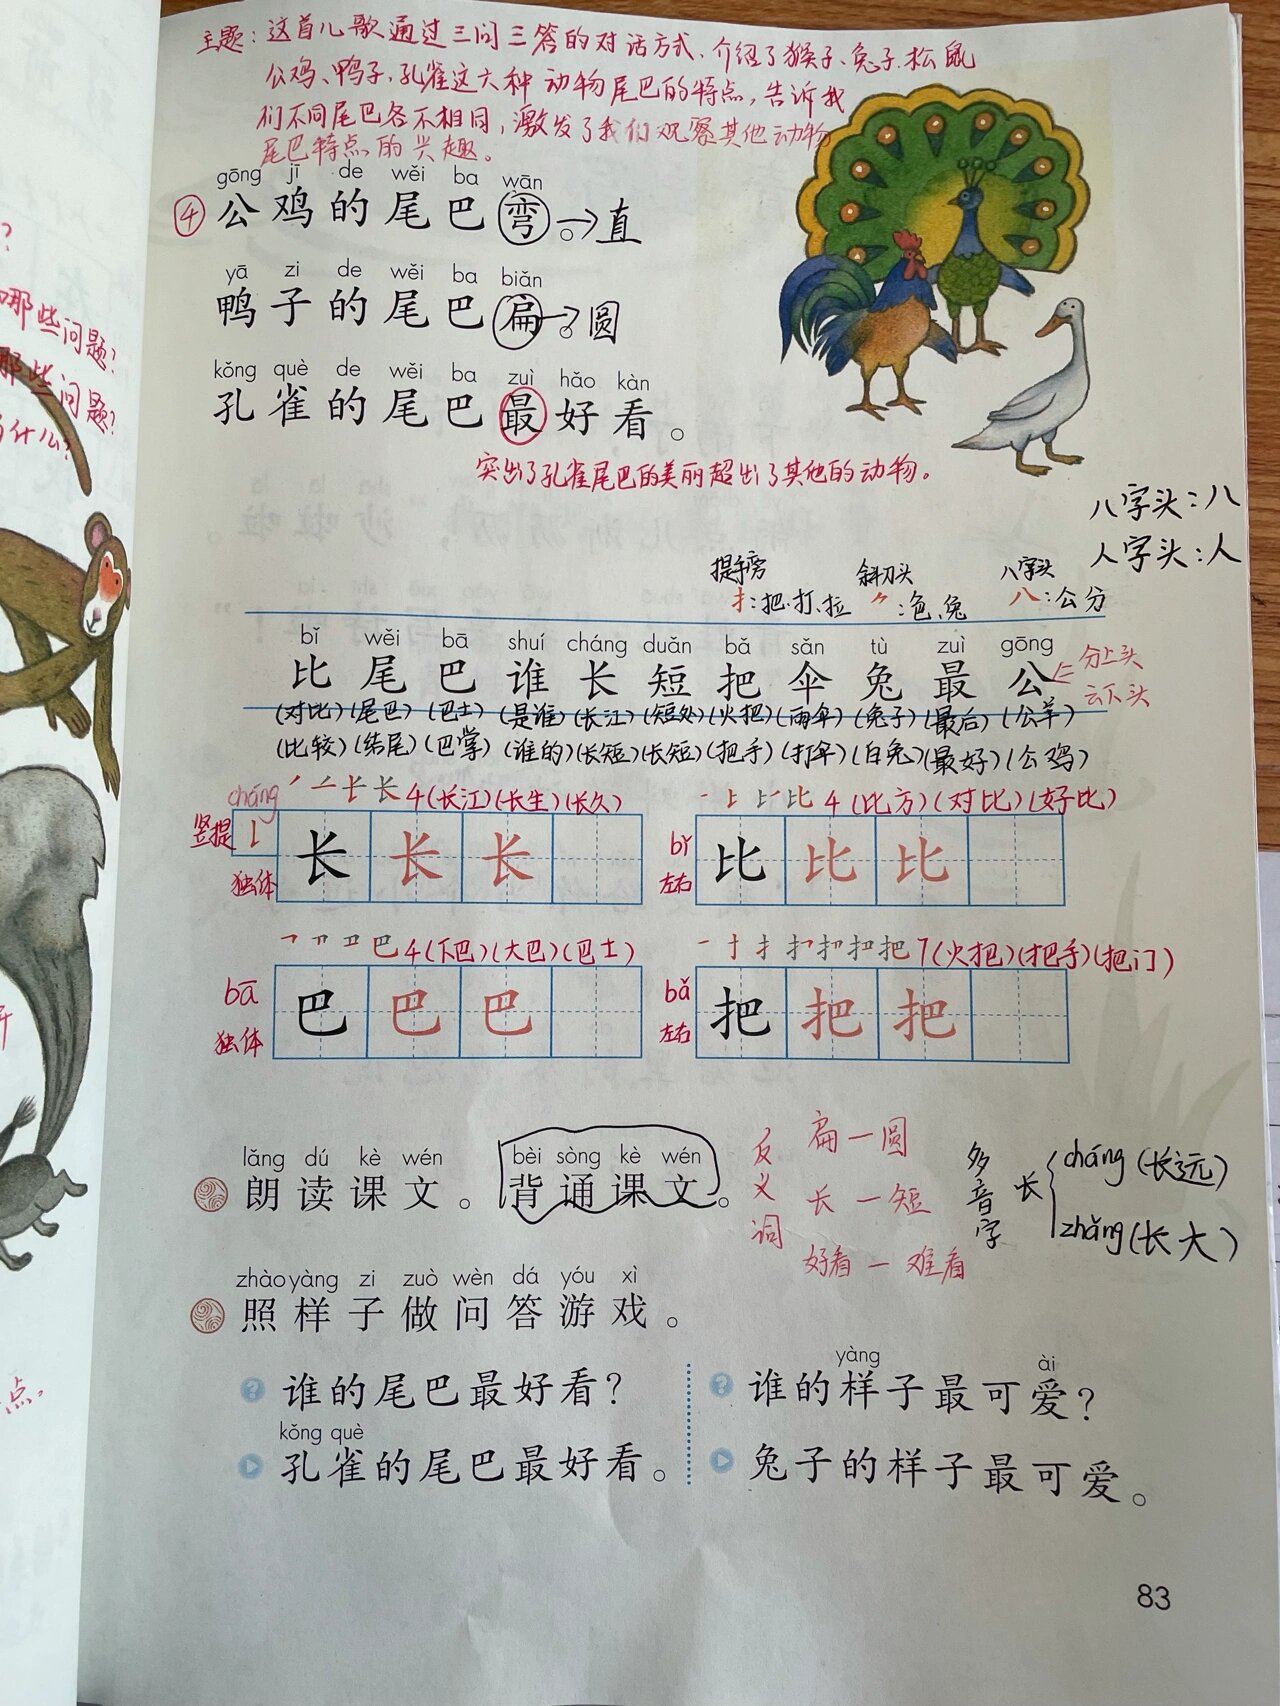 主题：这首儿歌通过三问三答的对话方式，介绍了猴子、兔子、松鼠
公鸡、鸭子、孔雀这六种动物尾巴的特点，告诉我
们不同尾巴各不相同，激发了我们观察其他动物
尾巴特点的兴趣。
gōng jī de wěi ba wān
④公鸡的尾巴弯。→直
yā zi de wěi ba biǎn
鸭子的尾巴扁。→圆
kǒng què de wěi ba zuì hǎo kàn
孔雀的尾巴最好看。
突出了孔雀尾巴的美丽超出了其他的动物。
八字头：八
人字头：人
提手旁 斜刀头 八字头
扌：把、打、拉 ⺈：色、兔 八：公分
bǐ wěi bā shuí cháng duǎn bǎ sǎn tù zuì gōng
比尾巴谁长短把伞兔最公
分上头
云下头
(对比)(尾巴)(巴士)(是谁)(长江)(短处)(火把)(雨伞)(兔子)(最后)(公羊)
(比较)(结尾)(巴掌)(谁的)(长短)(长短)(把手)(打伞)(白兔)(最好)(公鸡)
cháng 长 4(长江)(长生)(长久)
竖提 长 长 长
独体
比 4(比方)(对比)(好比)
bǐ 比 比 比
左右
巴 4(下巴)(大巴)(巴士)
bā 巴 巴 巴
独体
把 7(火把)(把手)(把门)
bǎ 把 把 把
左右
lǎng dú kè wén bèi sòng kè wén
朗读课文。背诵课文。
反义词
扁—圆
长—短
好看—难看
多音字 长
cháng(长远)
zhǎng(长大)
zhào yàng zi zuò wèn dá yóu xì
照样子做问答游戏。
谁的尾巴最好看？
kǒng què
孔雀的尾巴最好看。
yàng ài
谁的样子最可爱？
兔子的样子最可爱。
83
哪些问题？
那些问题？
什么？
点。